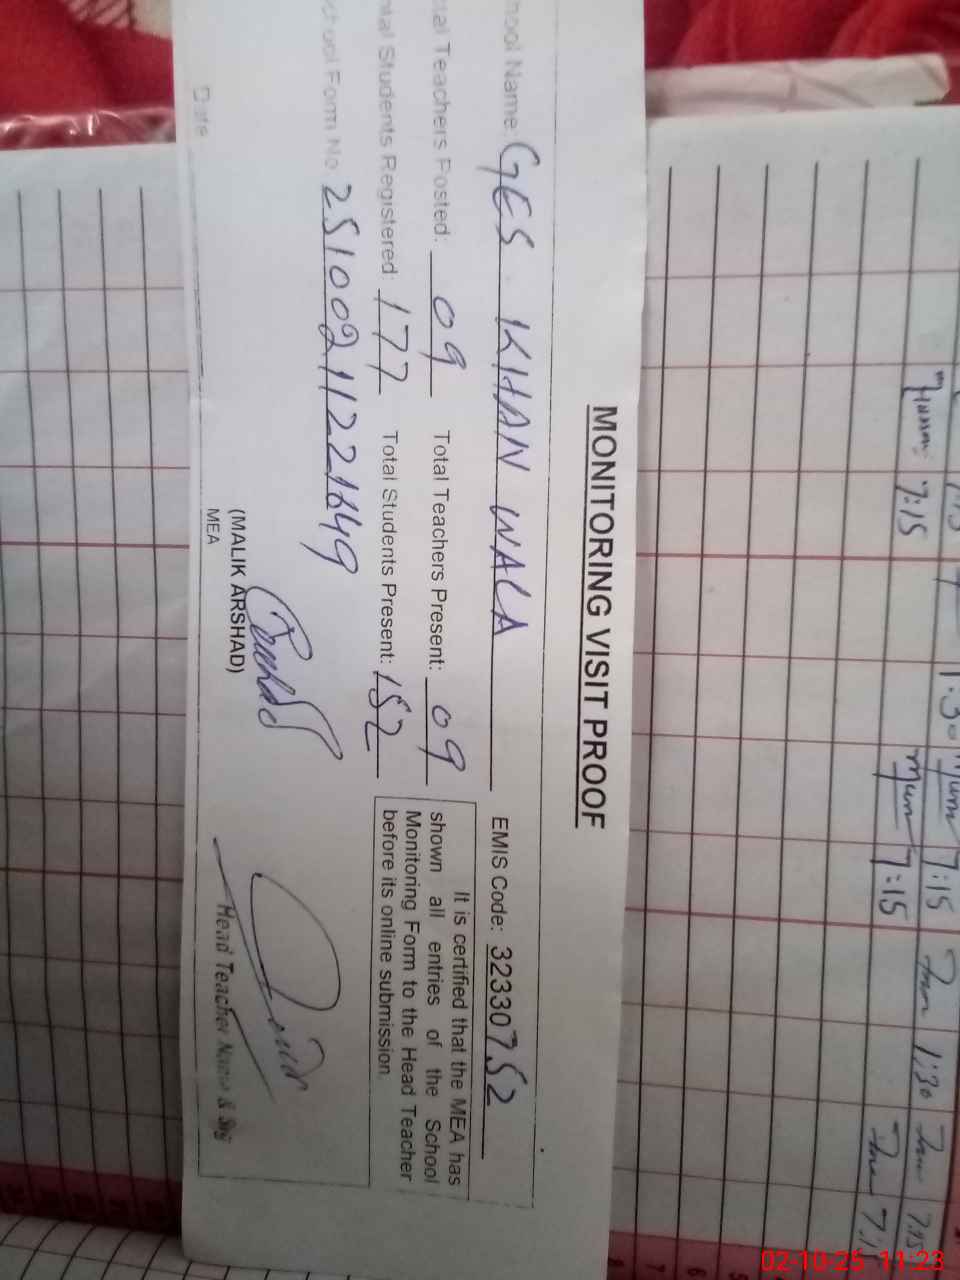 MONITORING VISIT PROOF
hool Name: GES KHAN WALA EMIS Code: 32330752
tal Teachers Posted: 09 Total Teachers Present: 09
ntal Students Registered: 177 Total Students Present: 152
chool Form No 25100211221649
It is certified that the MEA has
shown all entries of the School
Monitoring Form to the Head Teacher
before its online submission.
(MALIK ARSHAD)
MEA
Date
Head Teacher Name & Sig
7:15
1:30
7:15
7:15
1:30
7:15
02-10-25 11:23